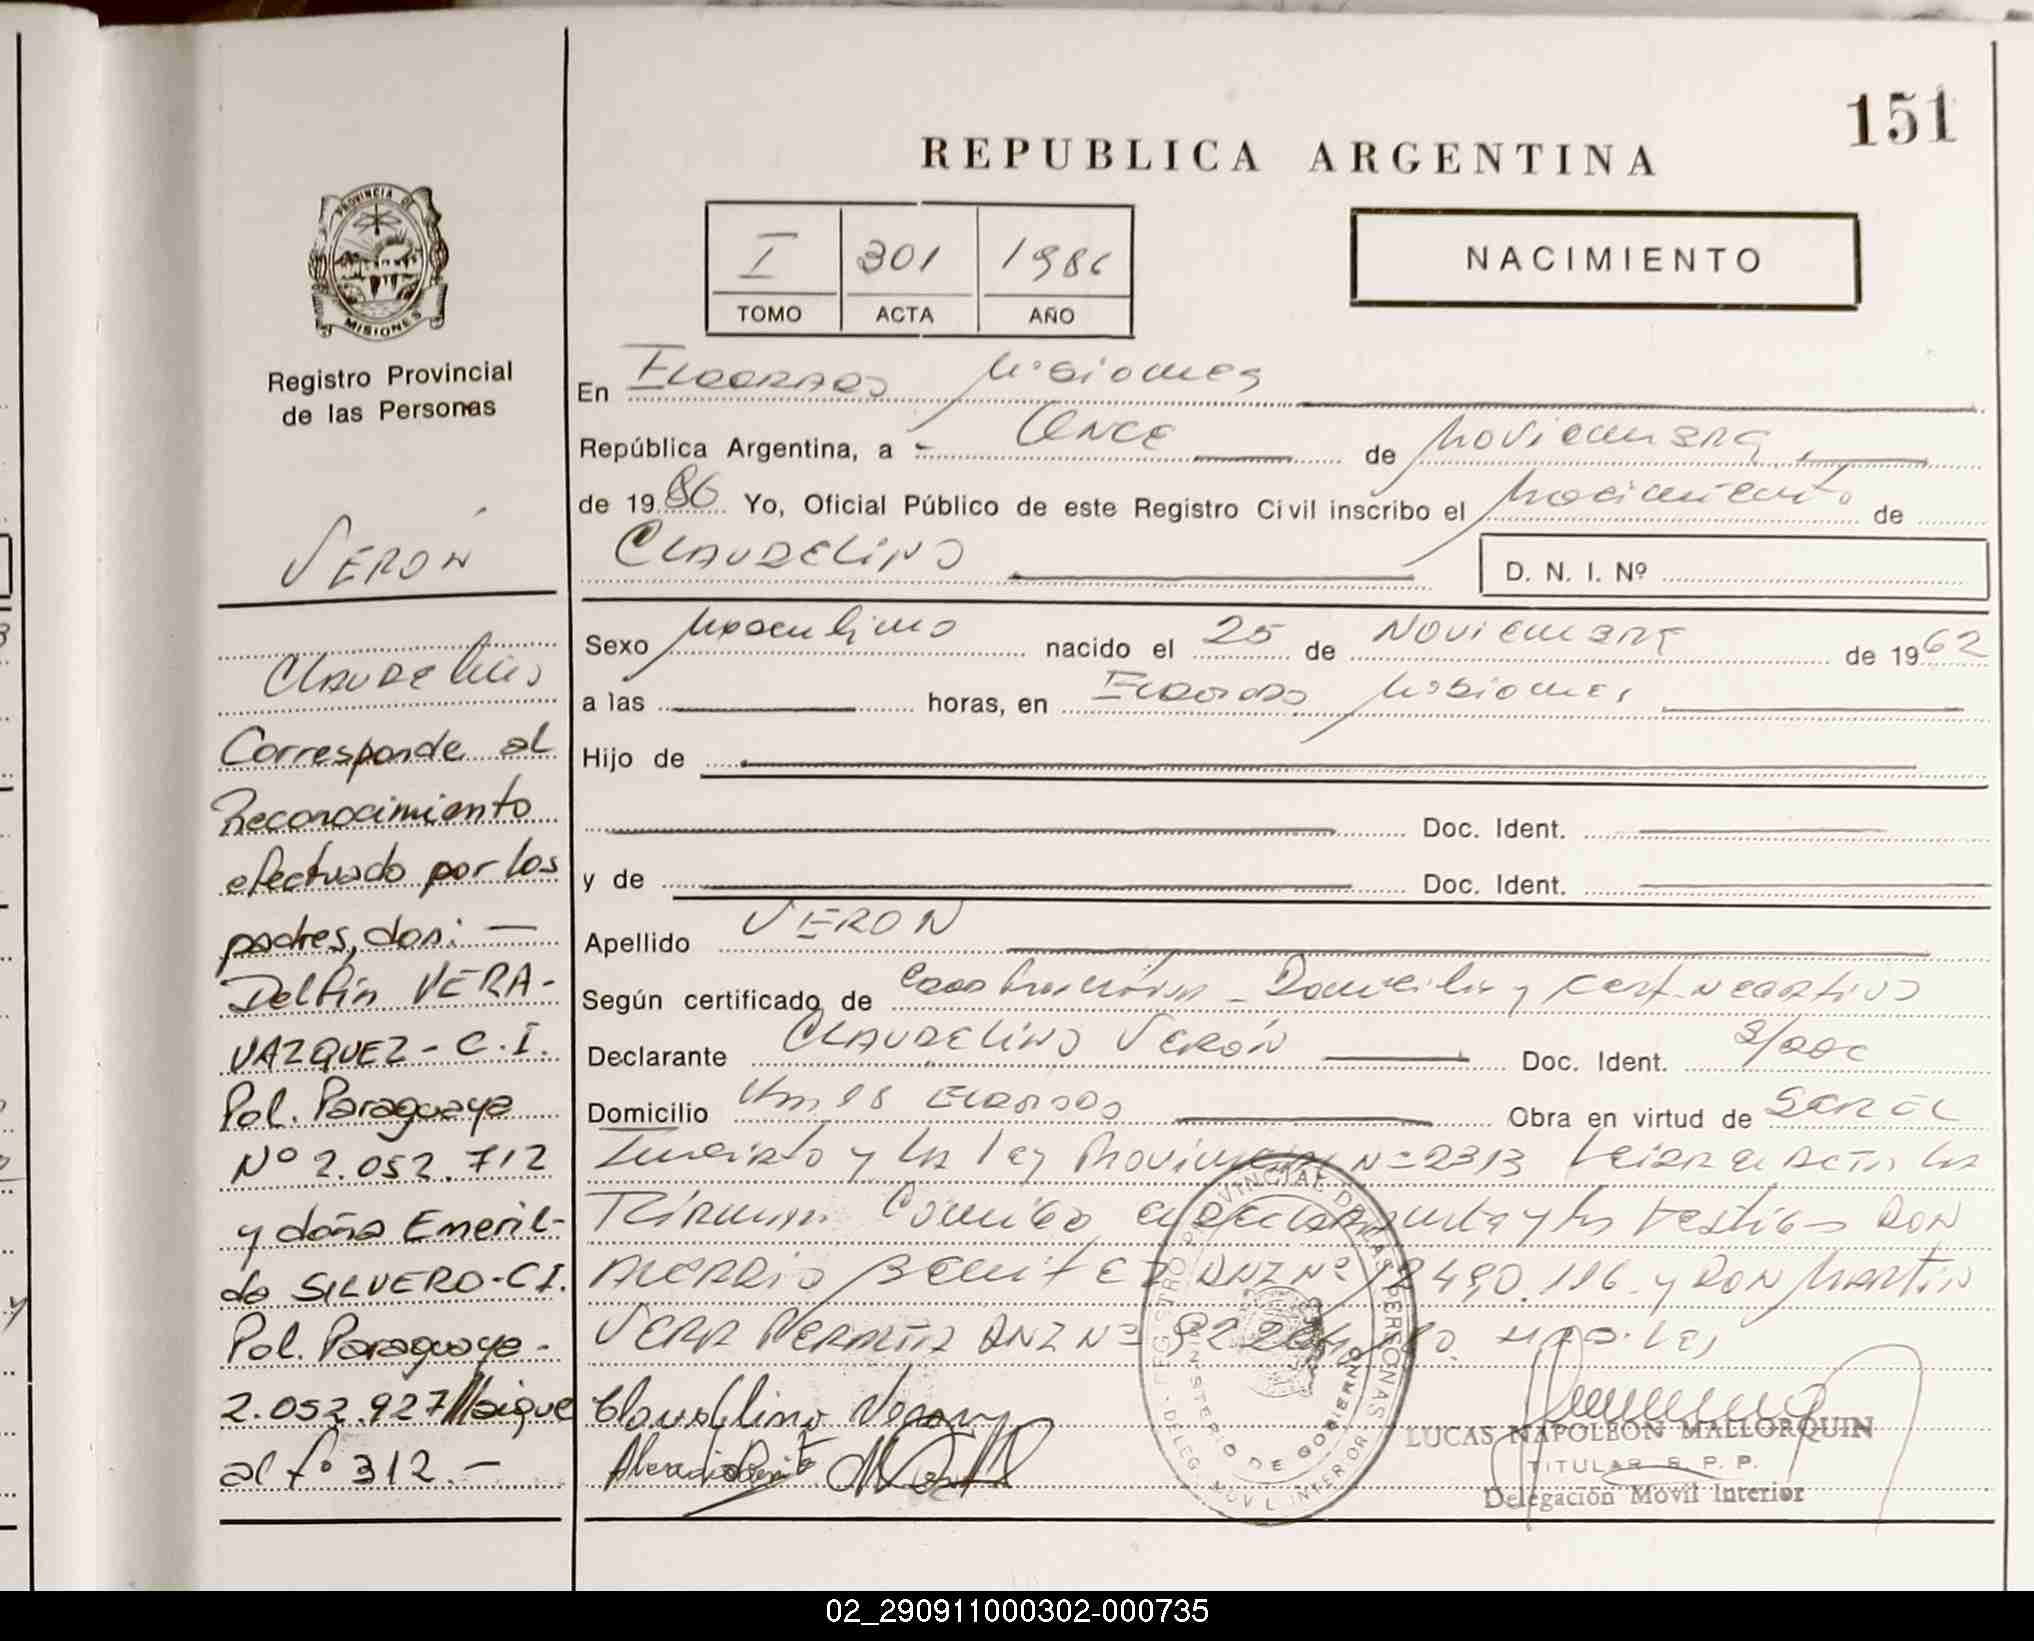 151
REPUBLICA ARGENTINA
I 301 1986
TOMO ACTA AÑO
NACIMIENTO
PROVINCIA DE
MISIONES
Registro Provincial
de las Personas
VERÓN
Claudelino
Corresponde al
Reconocimiento
efectuado por los
padres, don: —
Delfín VERA-
VAZQUEZ - C.I.
Pol. Paraguaya
Nº 2.052.712
y doña Emeril-
da SILVERO-C.I.
Pol. Paraguaya-
2.052.927//sigue
al fº 312.—
En Eldorado Misiones
República Argentina, a Once de Noviembre
de 1986 Yo, Oficial Público de este Registro Civil inscribo el Nacimiento de
CLAUDELINO
D. N. I. Nº
Sexo Masculino nacido el 25 de Noviembre de 1962
a las horas, en Eldorado Misiones
Hijo de
Doc. Ident.
y de Doc. Ident.
Apellido VERON
Según certificado de Domicilio y Cert. Negativo
Declarante CLAUDELINO VERÓN Doc. Ident. S/doc
Domicilio Km 18 Eldorado Obra en virtud de
y la Ley Provincial Nº 2313 Leida el Acta la
Firman Conmigo el declarante y los testigos DON
Benitez DNI Nº 12490.116 y DON Martin
VERA DNI Nº
Claudelino Verony
REGISTRO PROVINCIAL DE LAS PERSONAS
MINISTERIO DE GOBIERNO
DELEG. MOVIL INTERIOR
LUCAS NAPOLEON MALLORQUIN
TITULAR R. P. P.
Delegación Móvil Interior
02_290911000302-000735